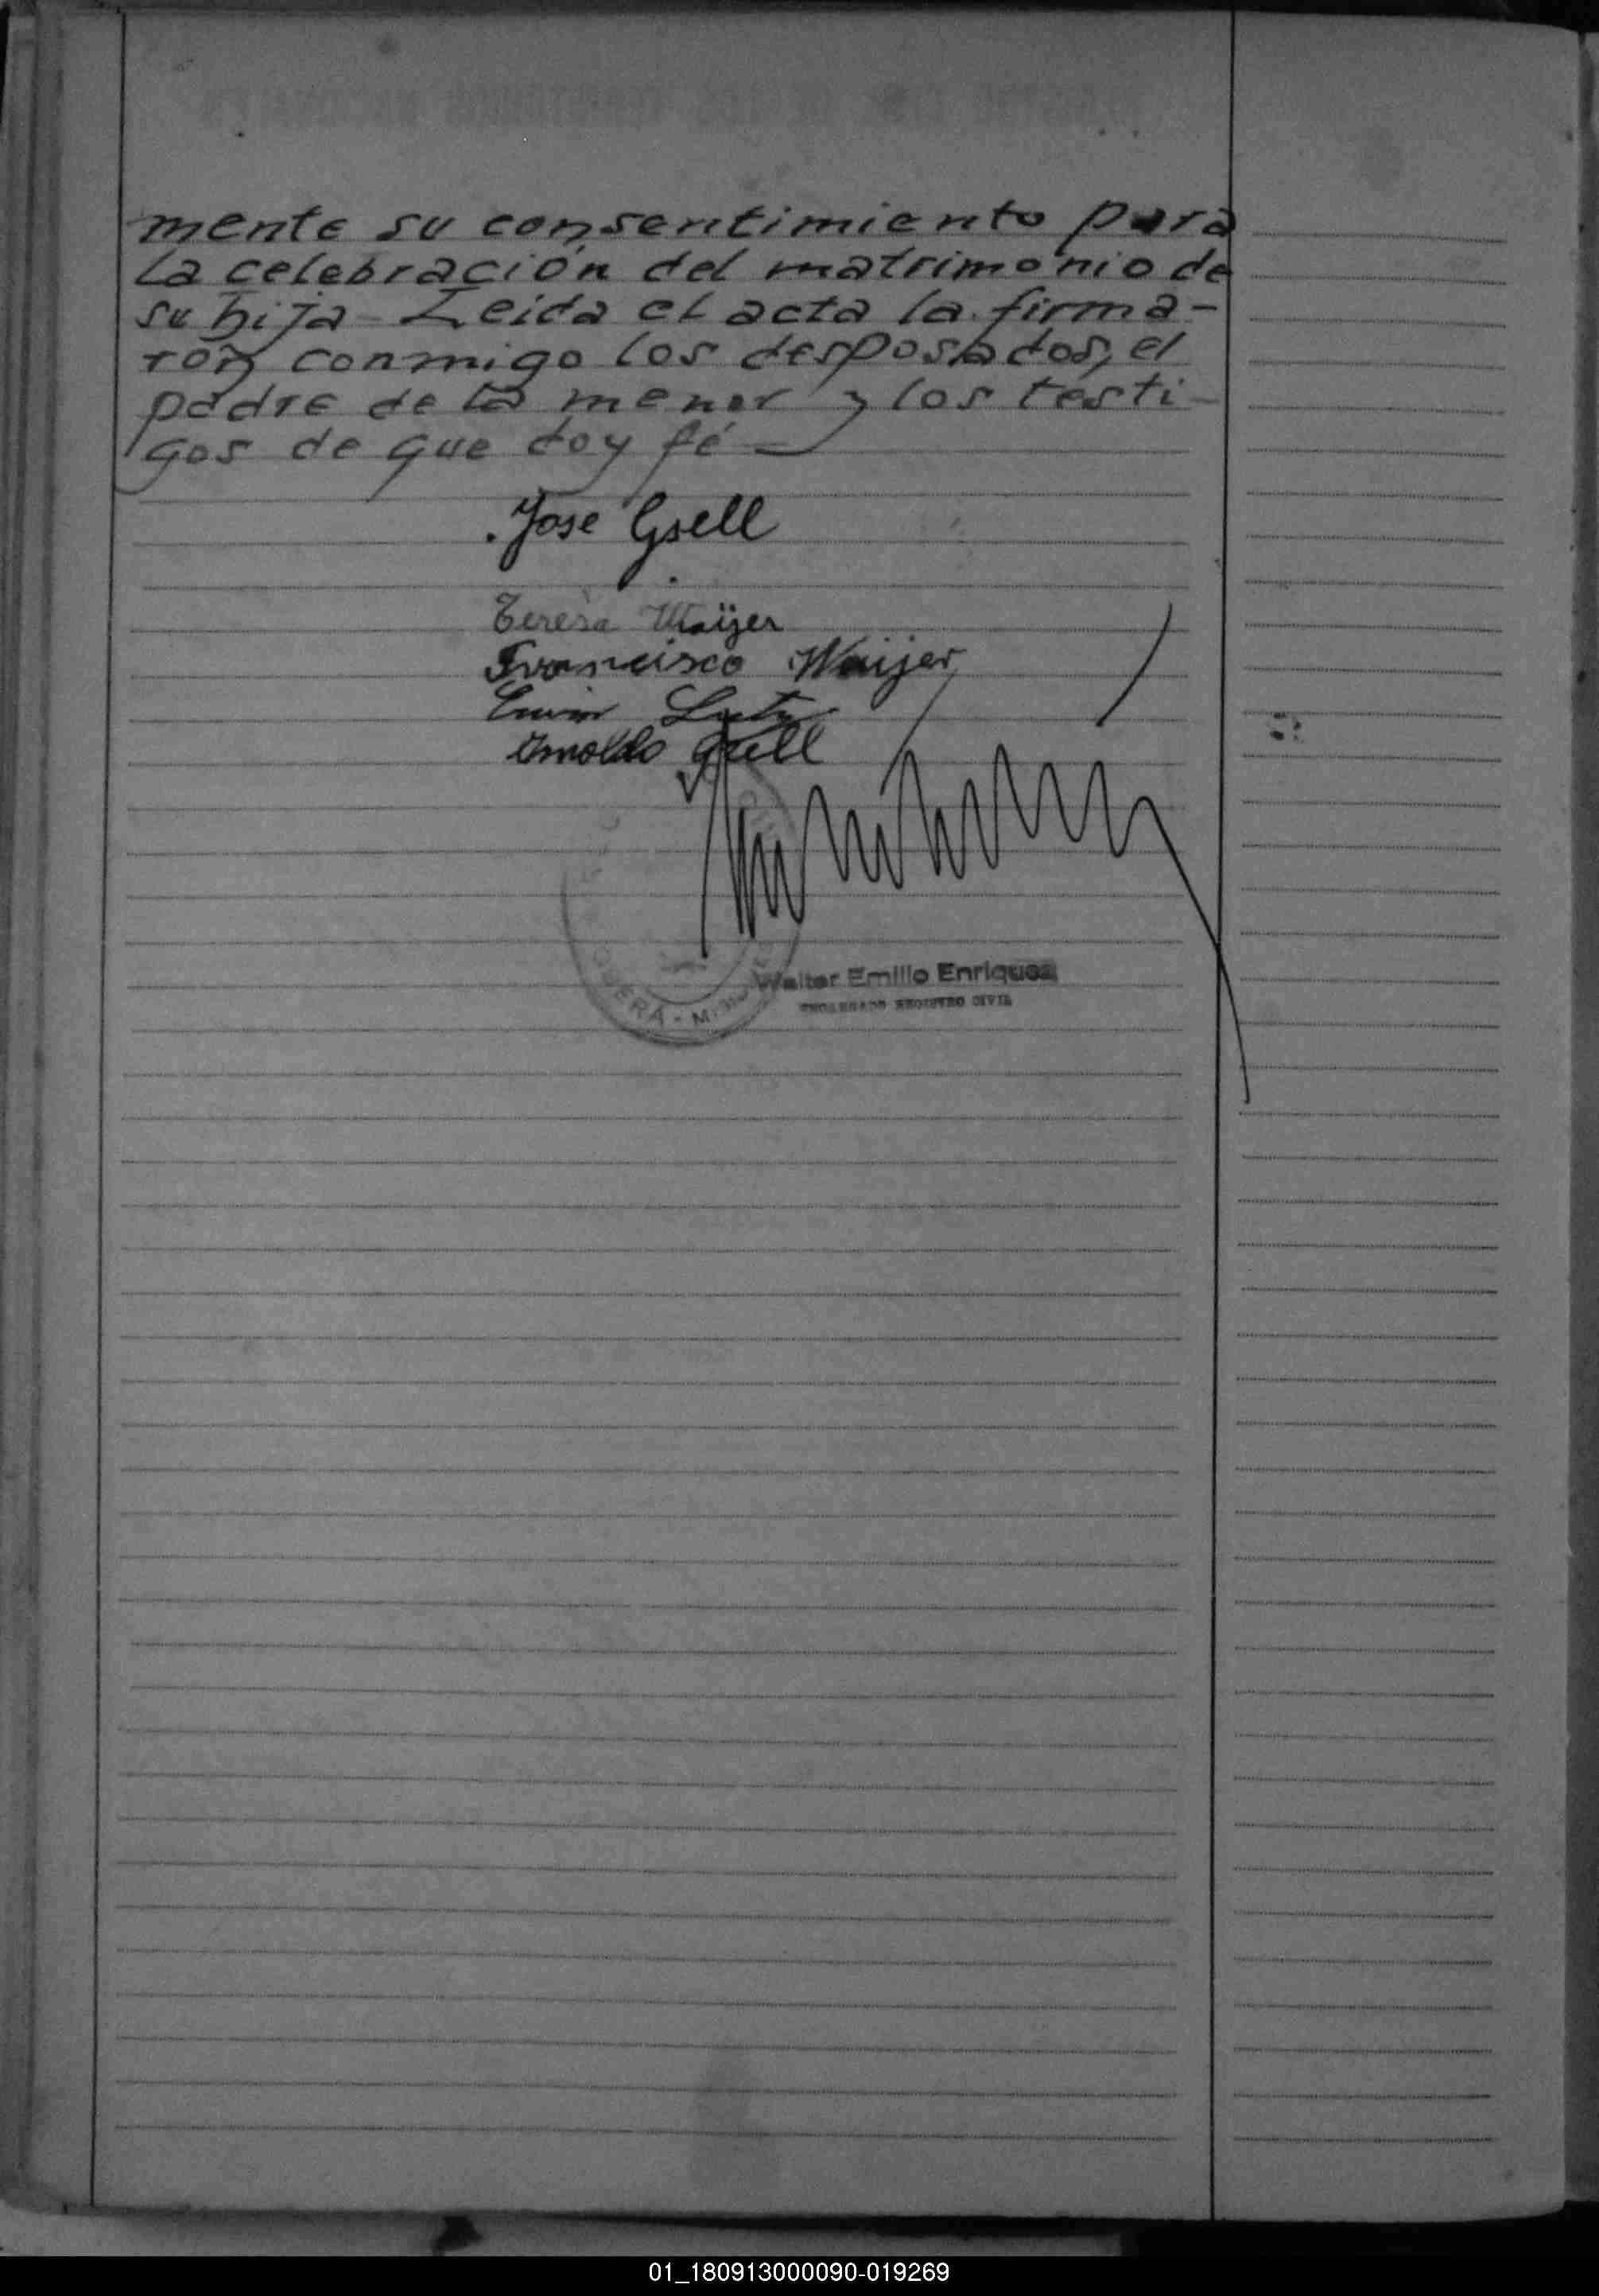 mente su consentimiento para
la celebración del matrimonio de
su hija - Leida el acta la firma-
ron conmigo los desposados, el
padre de la menor y los testi-
gos de que doy fé
Jose Gsell
Teresa Waijer
Francisco Waijer
Erwin Lutz
Arnoldo Gsell
OBERÁ - MISIONES
Walter Emilio Enriquez
ENCARGADO REGISTRO CIVIL
01_180913000090-019269